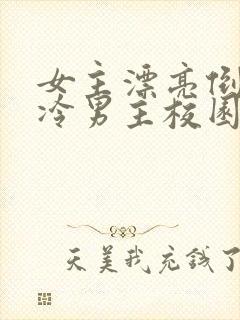 女主漂亮倒
冷男主校园
天美我充钱了